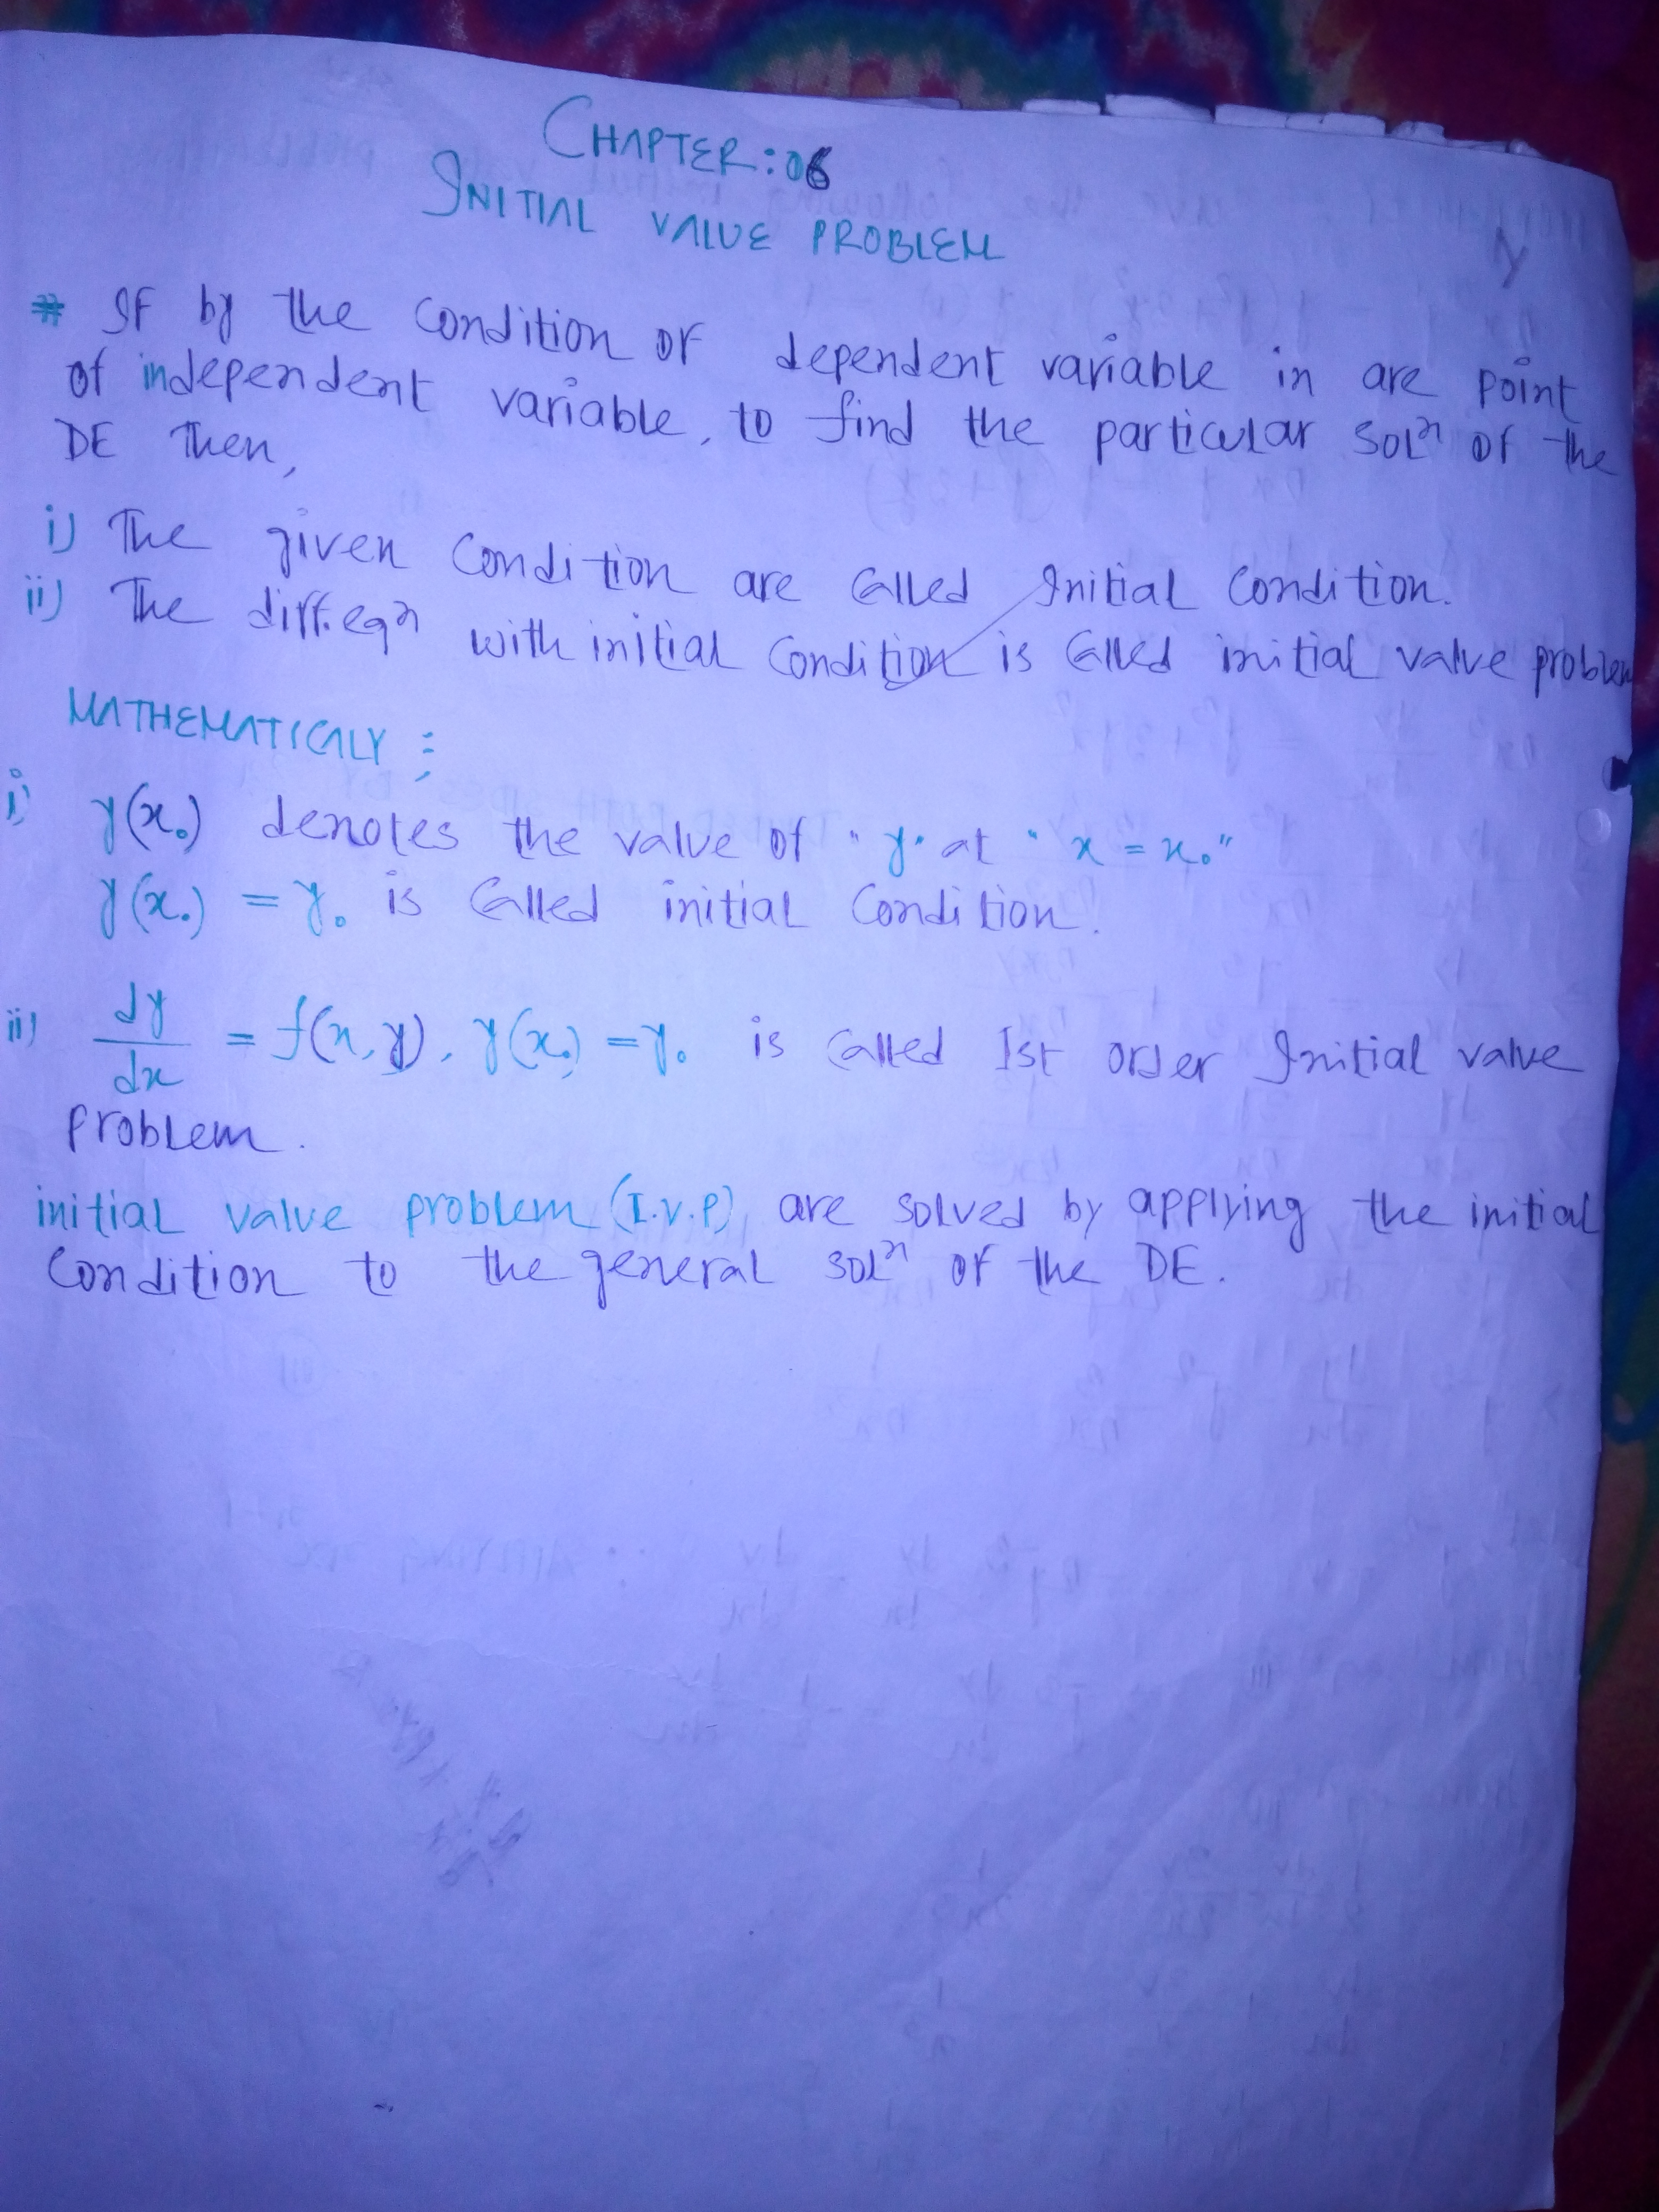 CHAPTER: 06
INITIAL VALUE PROBLEM
# If by the condition of dependent variable in are point
of independent variable, to find the particular solⁿ of the
DE Then,
i) The given condition are called Initial condition.
ii) The diff. eqn with initial condition is called initial value problem
MATHEMATICALY :
i) y(x₀) denotes the value of "y" at "x = x₀"
y(x₀) = y₀ is called initial condition.
ii) dy/dx = f(x, y), y(x₀) = y₀ is called 1st order Initial value
problem.
initial value problem (I.V.P) are solved by applying the initial
condition to the general solⁿ of the DE.